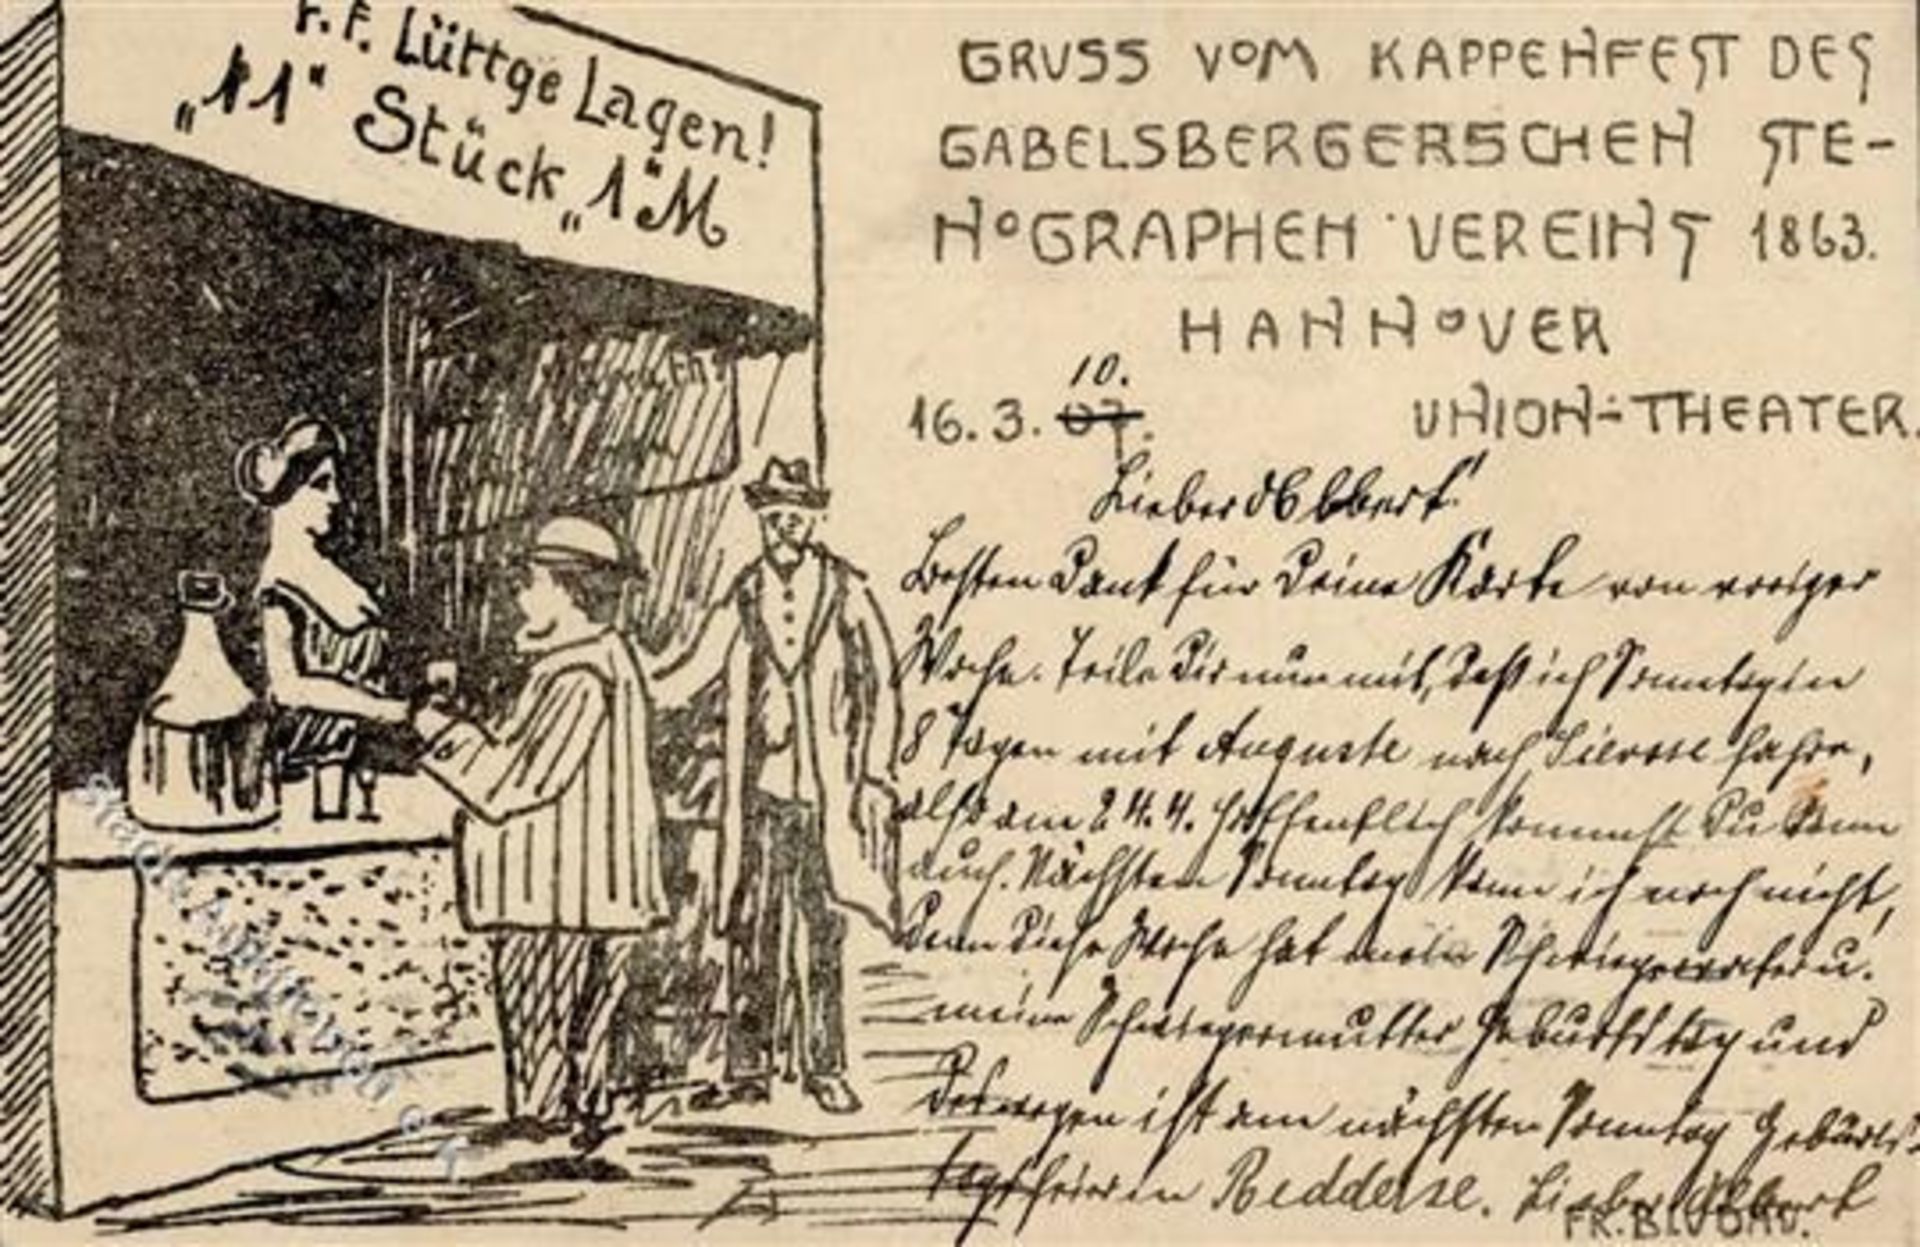 F.F. Lüttge Lagen!
„11" Stück „1" M
GRUSS VOM KAPPENFEST DES
GABELSBERGERSCHEN STE-
NOGRAPHEN VEREINS 1863.
HANNOVER
10.
16.3. 07.
UNION-THEATER.
Lieber Albert!
Besten Dank für Deine Karte von voriger
Woche. Teile Dir nun mit, daß ich Sonntag in
8 Tagen mit Auguste nach fahre,
also am 24.4. Hoffentlich kommst Du dann
auch. Nächsten Sonntag kann ich noch nicht,
denn diese Woche hat mein Schwiegervater u.
meine Schwiegermutter Geburtstag und
deswegen ist am nächsten Sonntag Geburts
tagsfeier in Redderse. Lieber Albert
FR. BLUDAU.